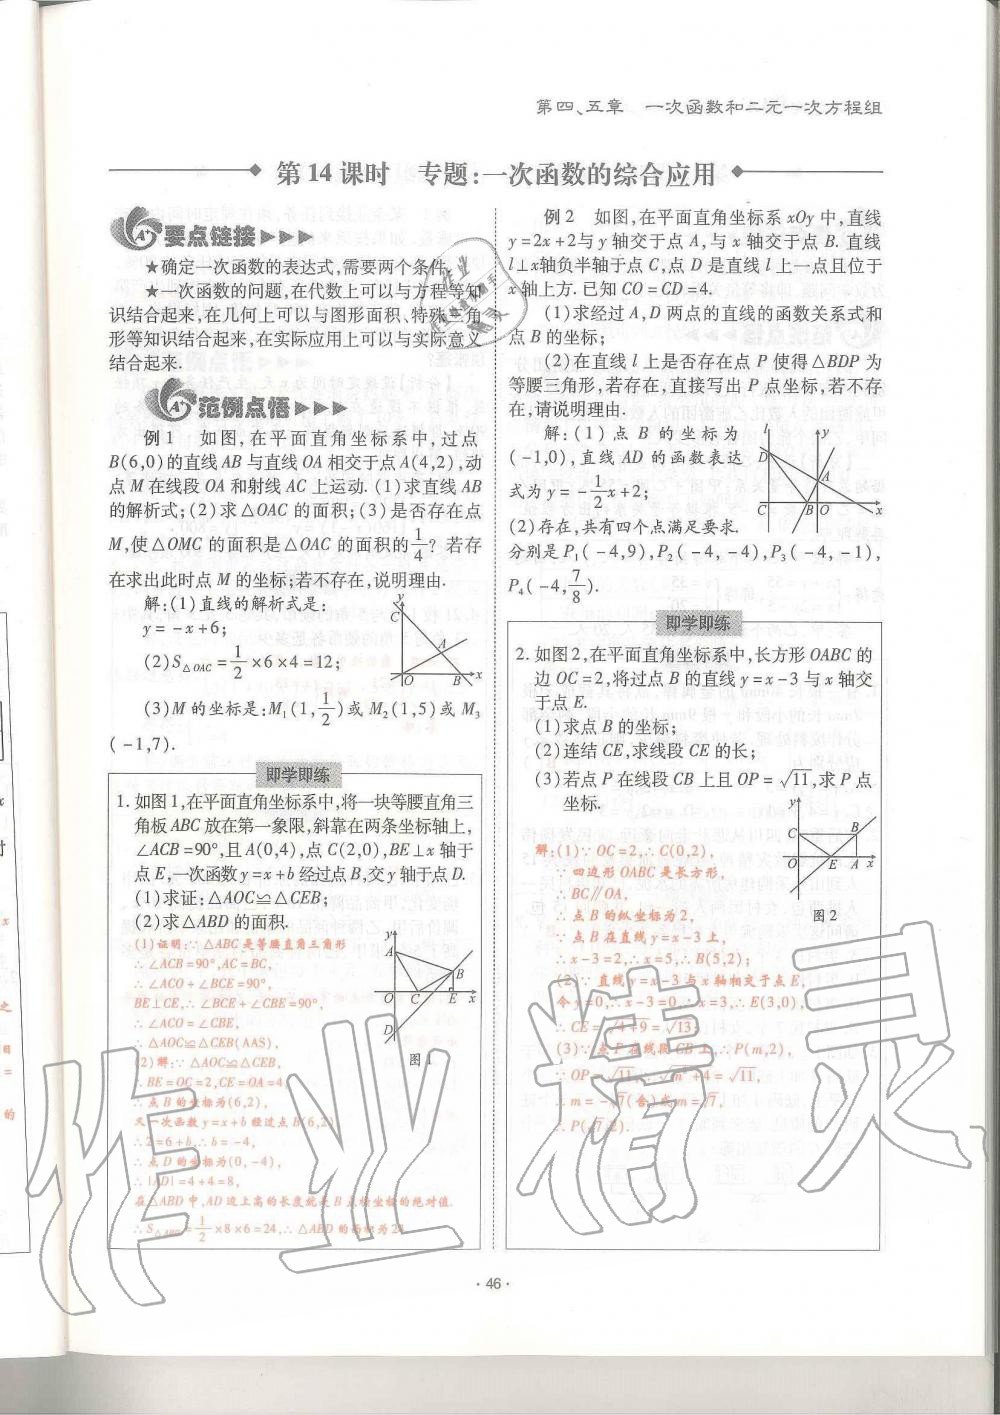 第四、五章　一次函数和二元一次方程组
第14课时　专题:一次函数的综合应用
要点链接
★确定一次函数的表达式,需要两个条件.
★一次函数的问题,在代数上可以与方程等知
识结合起来,在几何上可以与图形面积、特殊三角
形等知识结合起来,在实际应用上可以与实际意义
结合起来.
范例点悟
例1　如图,在平面直角坐标系中,过点
B(6,0)的直线AB与直线OA相交于点A(4,2),动
点M在线段OA和射线AC上运动.(1)求直线AB
的解析式;(2)求△OAC的面积;(3)是否存在点
M,使△OMC的面积是△OAC的面积的1/4?若存
在求出此时点M的坐标;若不存在,说明理由.
解:(1)直线的解析式是:
y=-x+6;
(2)S△OAC=1/2×6×4=12;
(3)M的坐标是:M₁(1,1/2)或M₂(1,5)或M₃
(-1,7).
C
A
O
B
x
即学即练
1. 如图1,在平面直角坐标系中,将一块等腰直角三
角板ABC放在第一象限,斜靠在两条坐标轴上,
∠ACB=90°,且A(0,4),点C(2,0),BE⊥x轴于
点E,一次函数y=x+b经过点B,交y轴于点D.
(1)求证:△AOC≌△CEB;
(2)求△ABD的面积.
(1)证明:∵△ABC是等腰直角三角形
∴∠ACB=90°,AC=BC,
∴∠ACO+∠BCE=90°,
BE⊥CE,∴∠BCE+∠CBE=90°,
∴∠ACO=∠CBE,
∴△AOC≌△CEB(AAS),
(2)解:∵△AOC≌△CEB,
∴BE=OC=2,CE=OA=4,
∴点B的坐标为(6,2),
又一次函数y=x+b经过点B(6,2)
∴2=6+b,∴b=-4,
∴点D的坐标为(0,-4),
∴|AD|=4+4=8,
在△ABD中,AD边上高的长度就是B点横坐标的绝对值.
∴S△ABD=1/2×8×6=24,∴△ABD的面积为24.
y
A
B
O
C
E
x
D
图1
例2　如图,在平面直角坐标系xOy中,直线
y=2x+2与y轴交于点A,与x轴交于点B.直线
l⊥x轴负半轴于点C,点D是直线l上一点且位于
x轴上方.已知CO=CD=4.
(1)求经过A,D两点的直线的函数关系式和
点B的坐标;
(2)在直线l上是否存在点P使得△BDP为
等腰三角形,若存在,直接写出P点坐标,若不存
在,请说明理由.
解:(1)点B的坐标为
(-1,0),直线AD的函数表达
式为y=-1/2x+2;
(2)存在,共有四个点满足要求.
分别是P₁(-4,9),P₂(-4,-4),P₃(-4,-1),
P₄(-4,7/8).
l
y
D
A
C
B
O
x
即学即练
2. 如图2,在平面直角坐标系中,长方形OABC的
边OC=2,将过点B的直线y=x-3与x轴交
于点E.
(1)求点B的坐标;
(2)连结CE,求线段CE的长;
(3)若点P在线段CB上且OP=√11,求P点
坐标.
解:(1)∵OC=2,∴C(0,2),
∵四边形OABC是长方形,
∴BC∥OA,
∴点B的纵坐标为2,
∵点B在直线y=x-3上,
∴x-3=2,∴x=5,∴B(5,2);
(2)∵直线y=x-3与x轴相交于点E,
令y=0,∴x-3=0,∴x=3,∴E(3,0),
∴CE=√4+9=√13;
(3)∵点P在线段CB上,∴P(m,2),
∵OP=√11,∴m²+4=√11,
∴m=-√7(舍)或m=√7,
∴P(√7,2).
y
C
B
O
E
A
x
图2
·46·
作业精灵